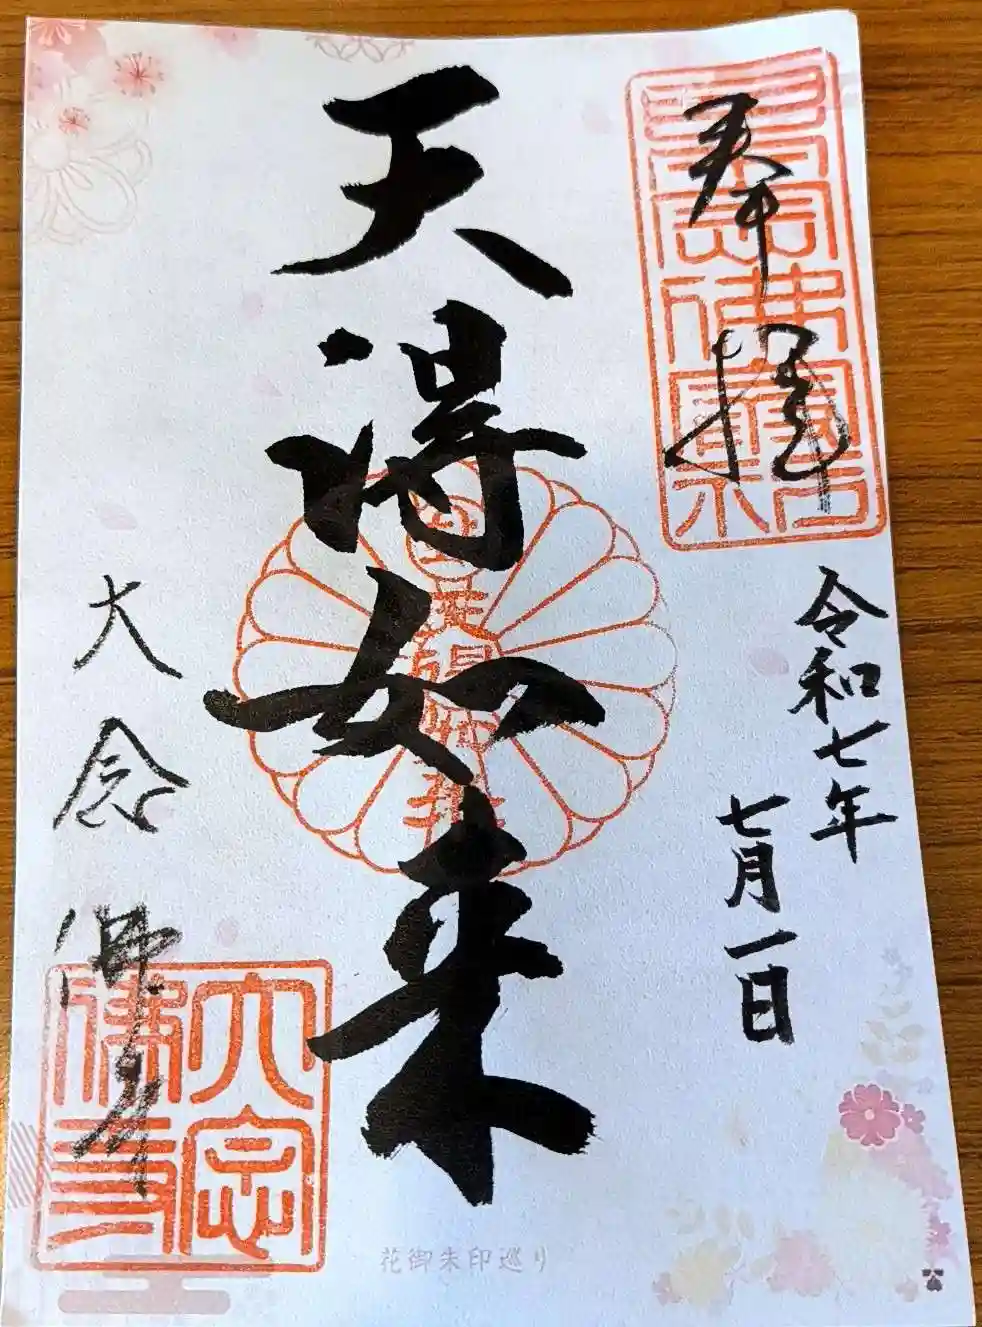 奉拝
令和七年
七月一日
天得如来
大念佛寺
大念
佛寺
花御朱印巡り